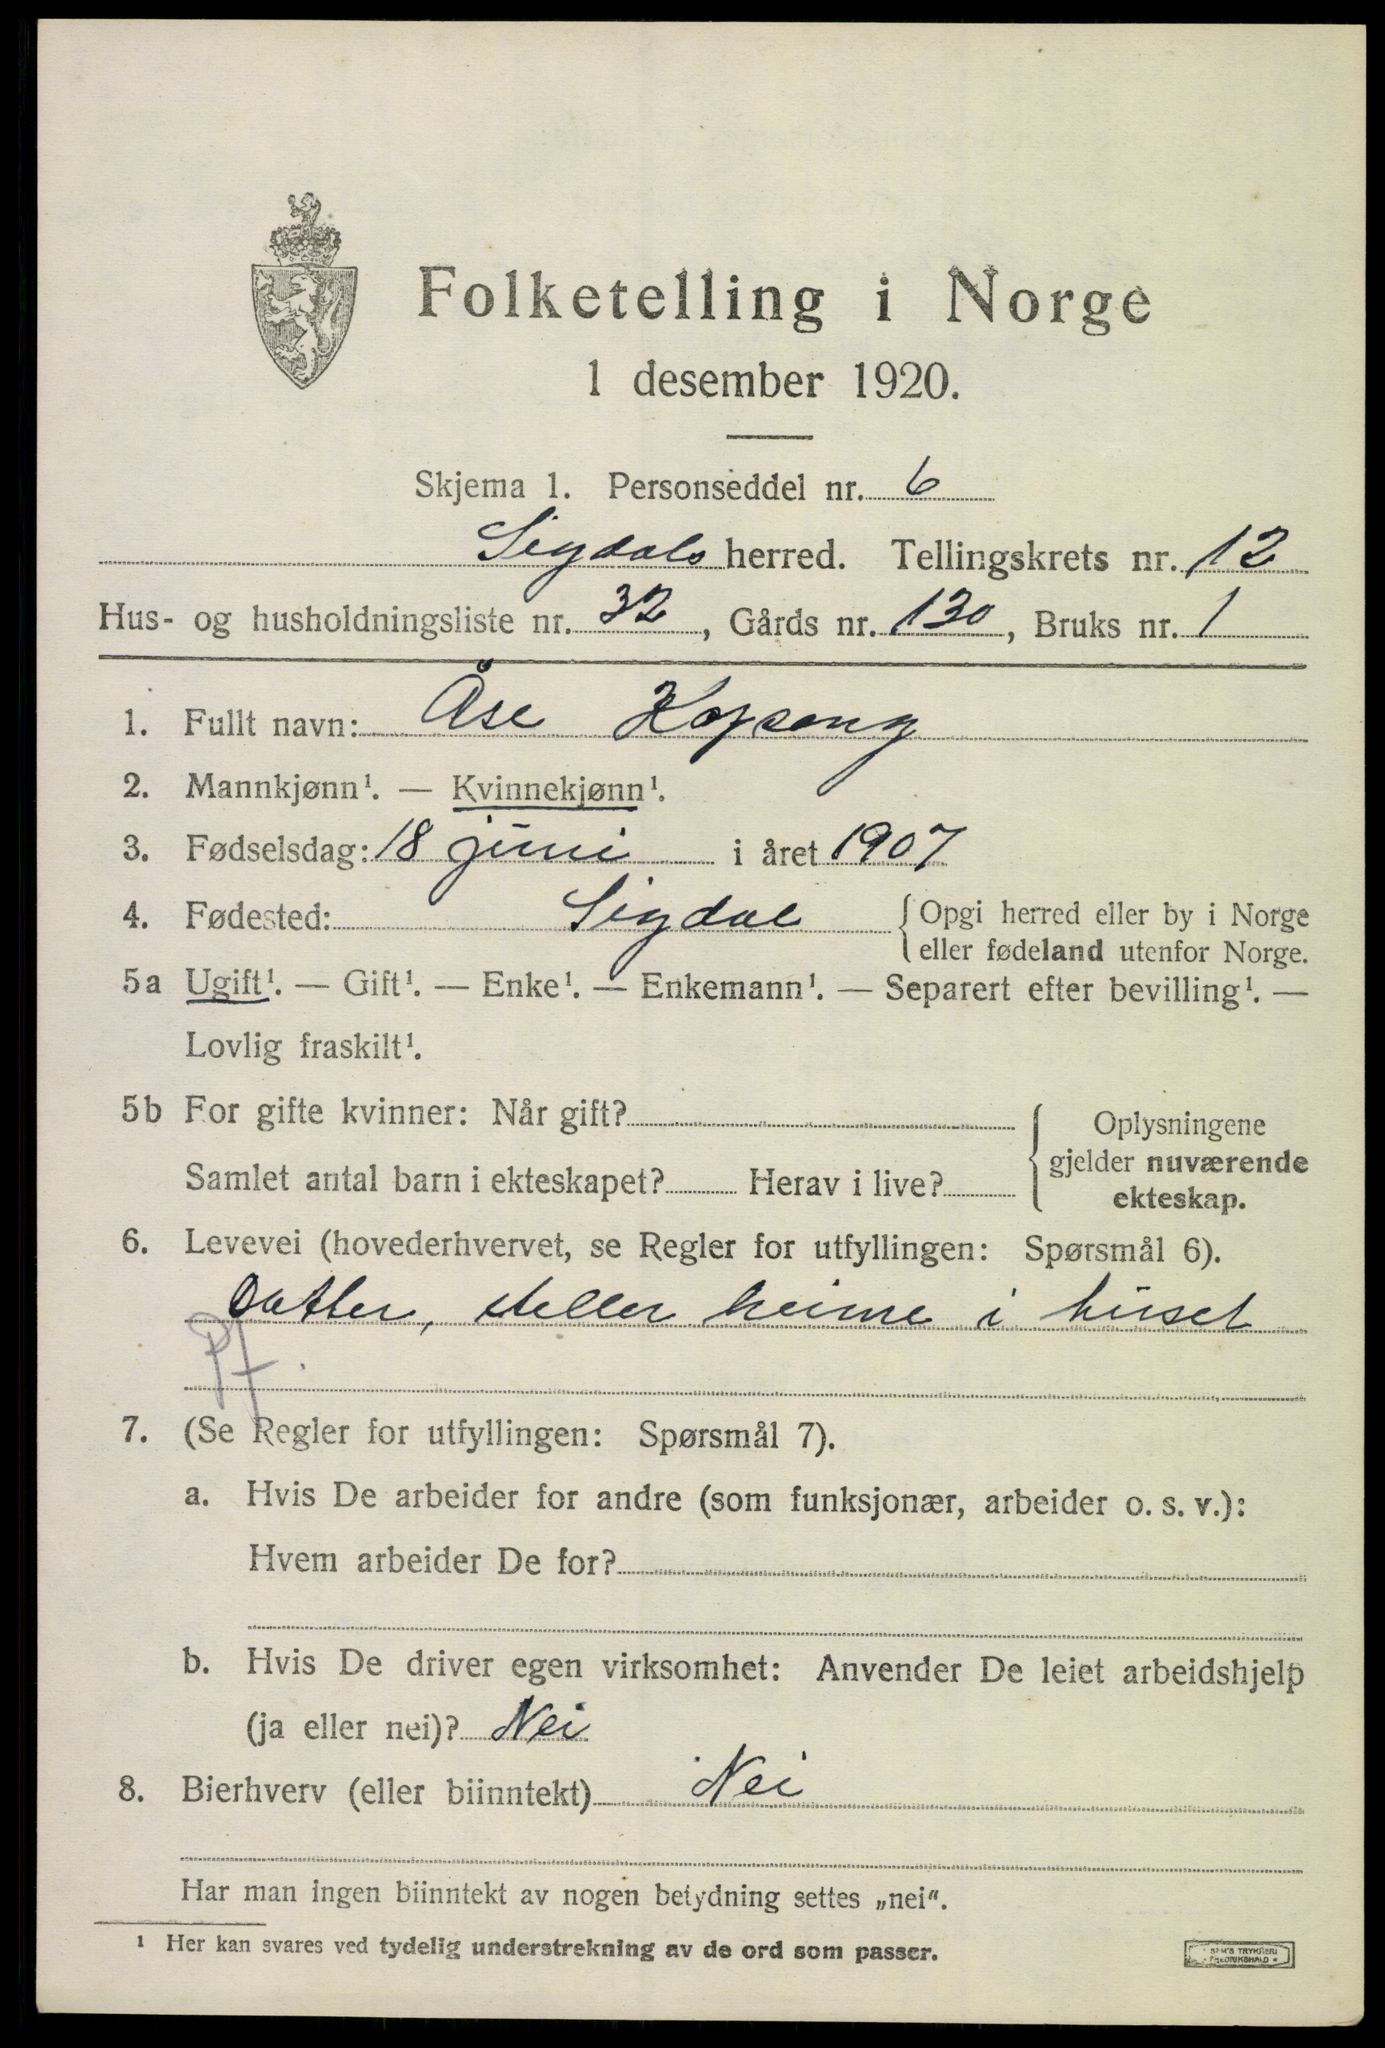 Folketelling i Norge
1 desember 1920.
Skjema 1. Personseddel nr. 6
Sigdals herred. Tellingskrets nr. 12
Hus- og husholdningsliste nr. 32, Gårds nr. 130, Bruks nr. 1
1. Fullt navn: Åse Kopseng
2. Mannkjønn¹. — Kvinnekjønn¹.
3. Fødselsdag: 18 juni i året 1907
4. Fødested: Sigdal {Opgi herred eller by i Norge
eller fødeland utenfor Norge.
5a Ugift¹. — Gift¹. — Enke¹. — Enkemann¹. — Separert efter bevilling¹. —
Lovlig fraskilt¹.
5b For gifte kvinner: Når gift?
Samlet antal barn i ekteskapet? Herav i live?
Oplysningene
gjelder nuværende
ekteskap.
6. Levevei (hovederhvervet, se Regler for utfyllingen: Spørsmål 6).
Datter, steller heime i huset
Pf
7. (Se Regler for utfyllingen: Spørsmål 7).
a. Hvis De arbeider for andre (som funksjonær, arbeider o. s. v.):
Hvem arbeider De for?
b. Hvis De driver egen virksomhet: Anvender De leiet arbeidshjelp
(ja eller nei)? Nei
8. Bierhverv (eller biinntekt) Nei
Har man ingen biinntekt av nogen betydning settes „nei“.
¹ Her kan svares ved tydelig understrekning av de ord som passer.
TRYKKERI
FREDRIKSHALD